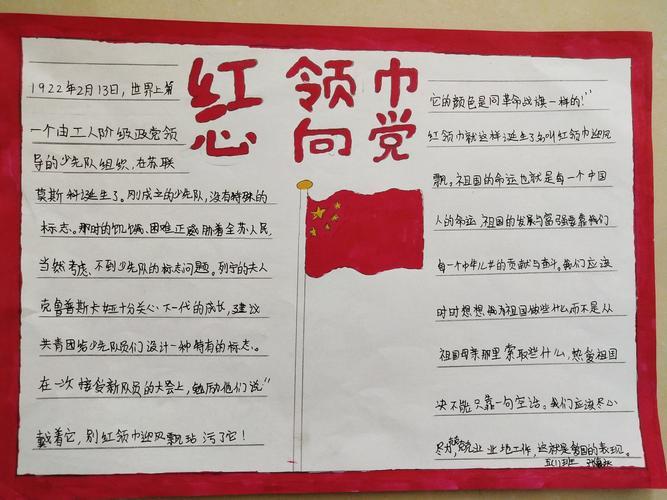 红领巾
心向党
1922年2月13日，世界上第
一个由工人阶级政党领
导的少先队组织，在苏联
莫斯科诞生了。刚成立的少先队，没有特殊的
标志。那时的饥饿、困难正威胁着全苏人民，
当然考虑不到少先队的标志问题。列宁的夫人
克鲁普斯卡娅十分关心下一代的成长，建议
共青团给少先队员们设计一种特有的标志。
在一次接受新队员的大会上，勉励他们说“
戴着它，别红领巾迎风飘玷污了它！
它的颜色是同革命战旗一样的！”
红领巾就这样诞生了，叫红领巾迎风
飘。祖国的命运也就是每一个中国
人的命运，祖国的发展与富强要靠我们
每一个中华儿女的贡献与奋斗。我们应该
时时想想我为祖国做些什么而不是从
祖国母亲那里索取些什么，热爱祖国
决不能只靠一句空话。我们应该尽心
尽力，兢兢业业地工作，这就是爱国的表现。
五(1)班